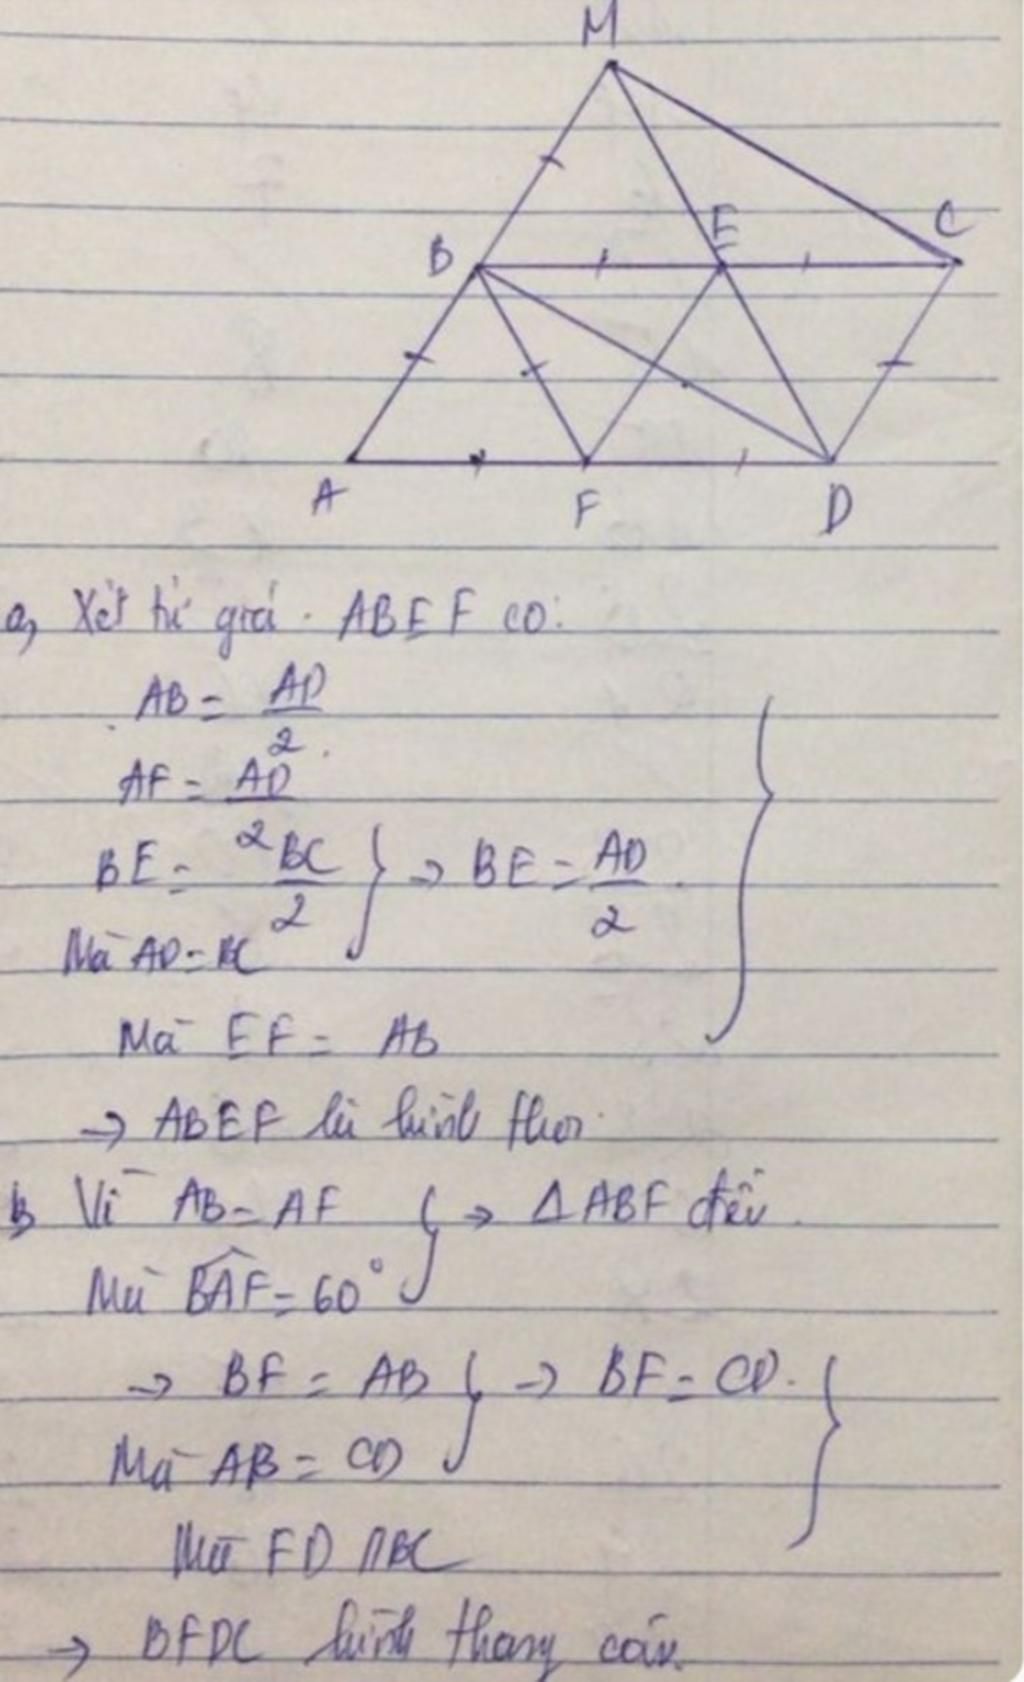 M
B E C
A F D
a, Xét tứ giác ABEF có:
AB = AD/2
AF = AD/2
BE = BC/2 } → BE = AD/2
Mà AD = BC
Mà EF = AB
→ ABEF là hình thoi
b, Vì AB = AF } → ΔABF đều
Mà BAF = 60°
→ BF = AB } → BF = CD
Mà AB = CD
Mà FD // BC
→ BFDC hình thang cân